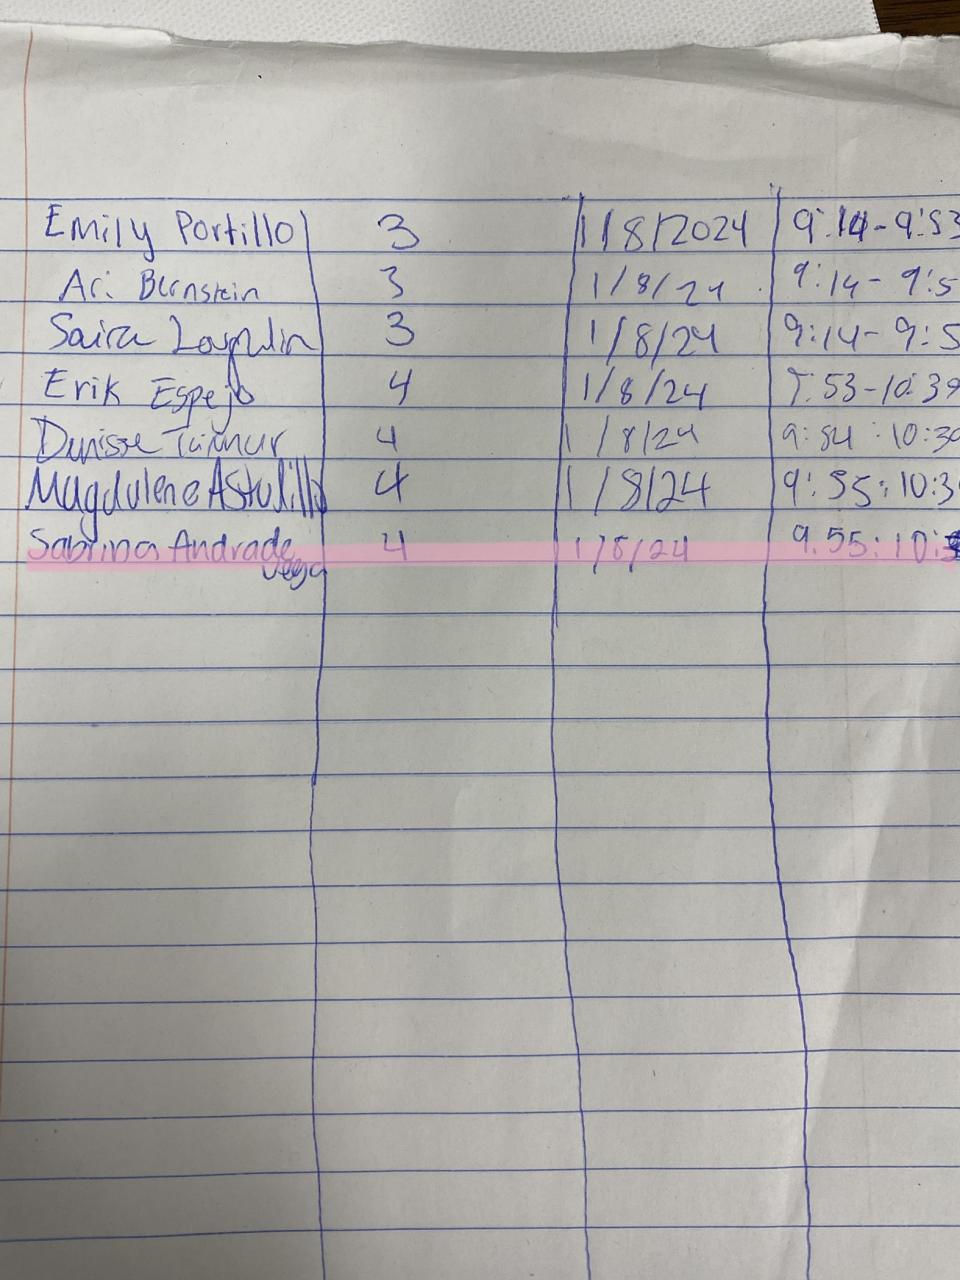 Emily Portillo 3 1/8/2024 9:14-9:53
Ari Bernstein 3 1/8/24 9:14-9:5
Saira 3 1/8/24 9:14-9:5
Erik Espejo 4 1/8/24 9:53-10:39
Denisse 4 1/8/24 9:54:10:30
Magdalene Astudillo 4 1/8/24 9:55:10:3
Sabrina Andrade 4 1/8/24 9:55:10:
Vega